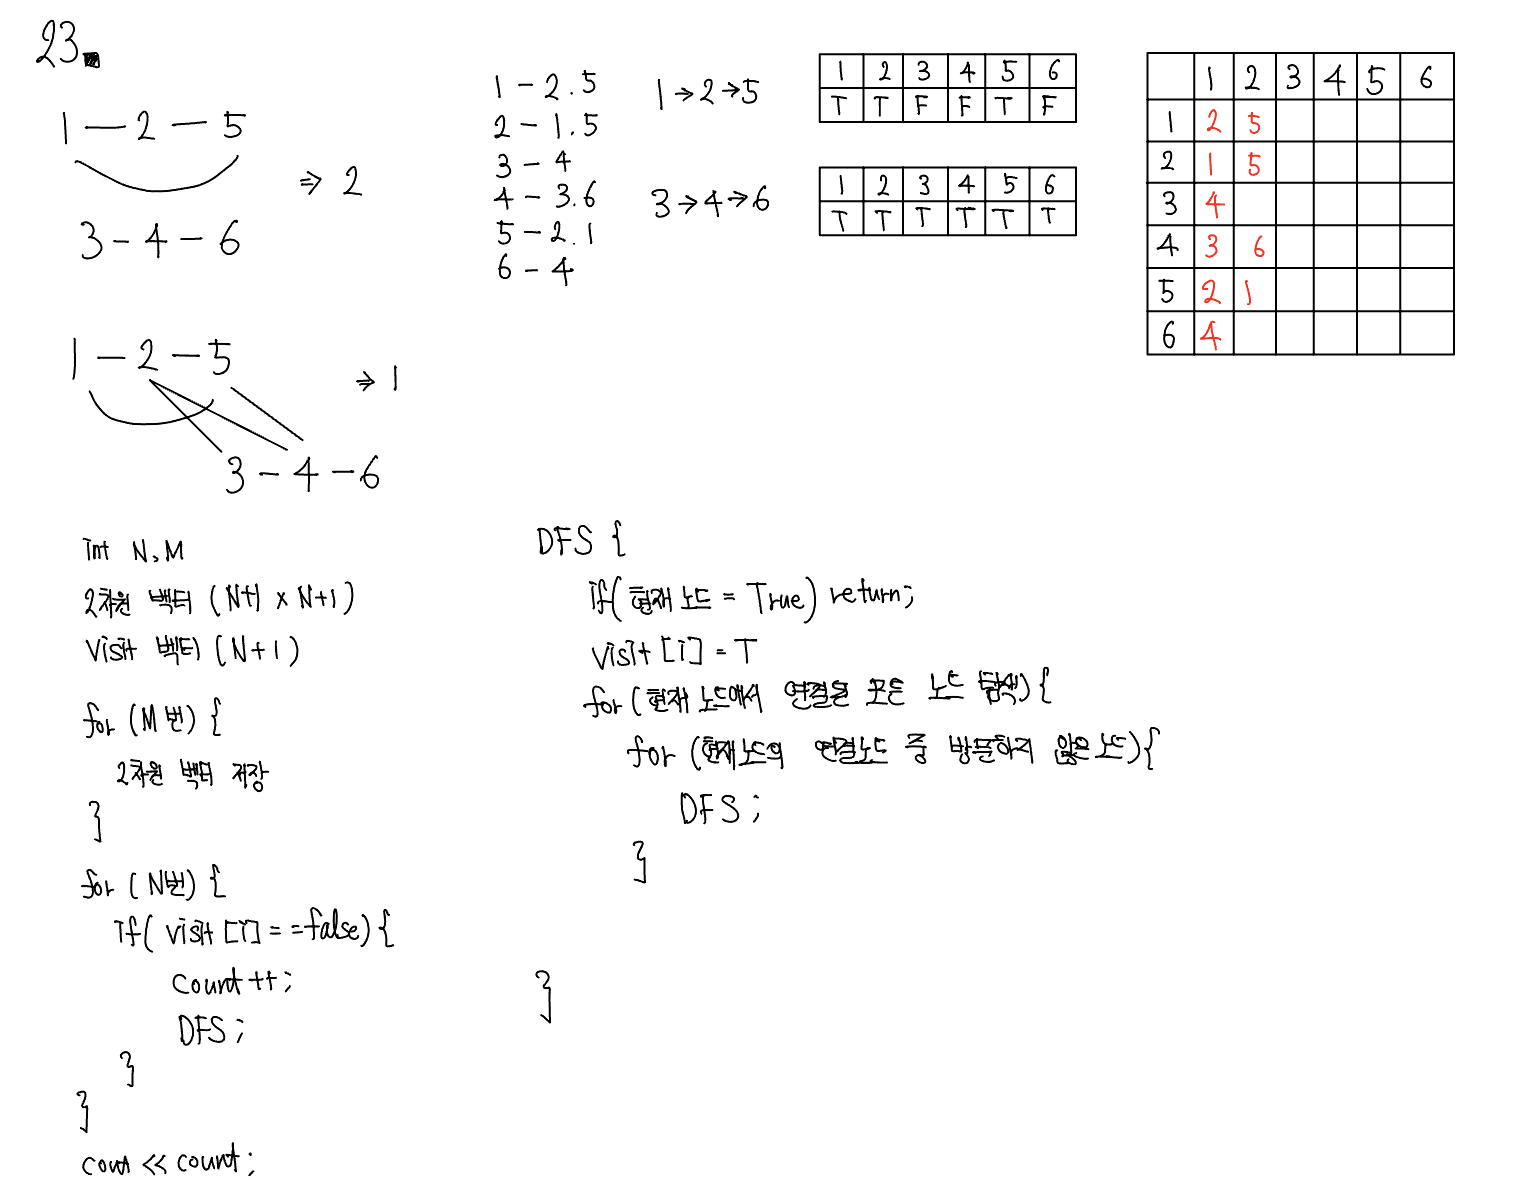 23.
1 — 2 — 5
⇒ 2
3 - 4 - 6
1 - 2.5
2 - 1.5
3 - 4
4 - 3.6
5 - 2.1
6 - 4
1→2→5
3→4→6
1 2 3 4 5 6
T T F F T F
1 2 3 4 5 6
T T T T T T
1 2 3 4 5 6
1 2 5
2 1 5
3 4
4 3 6
5 2 1
6 4
1 - 2 - 5
⇒ 1
3 - 4 - 6
int N, M
2차원 벡터 (N+1 x N+1)
visit 벡터 (N+1)
for (M번) {
2차원 벡터 저장
}
for (N번) {
if( visit [i] == false) {
count ++;
DFS;
}
}
cout << count;
DFS {
if(현재 노드 = True) return;
visit [i] = T
for (현재 노드에서 연결된 모든 노드 탐색) {
for (현재노드의 연결노드 중 방문하지 않은 노드){
DFS;
}
}